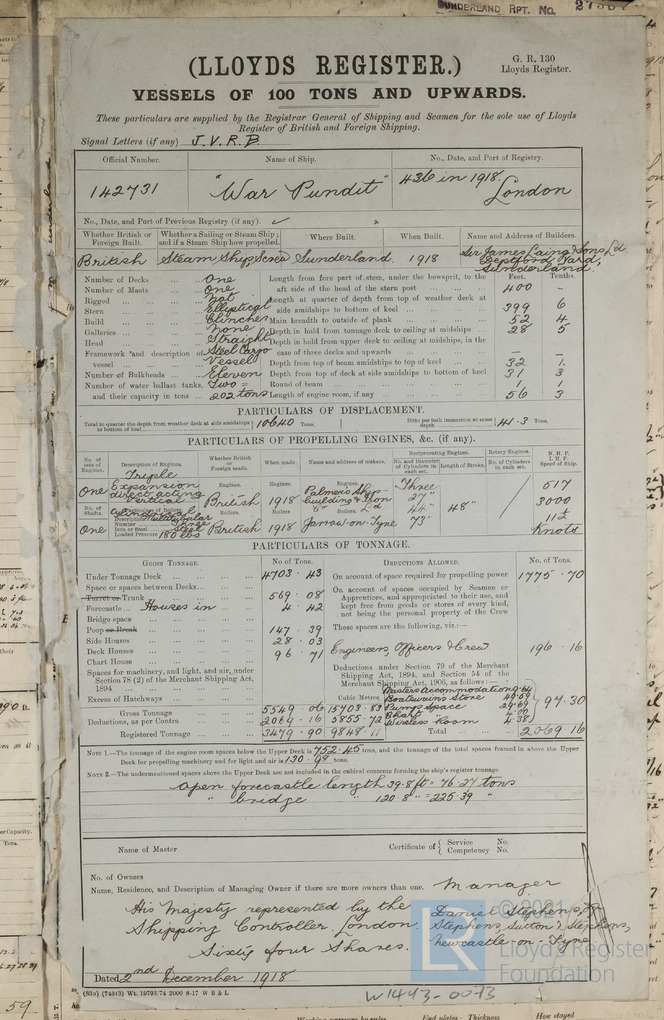 SUNDERLAND RPT. No.
(LLOYDS REGISTER.)
G. R. 130
Lloyds Register.
VESSELS OF 100 TONS AND UPWARDS.
These particulars are supplied by the Registrar General of Shipping and Seamen for the sole use of Lloyds
Register of British and Foreign Shipping.
Signal Letters (if any) J.V.R.B
Official Number. Name of Ship. No., Date, and Port of Registry.
142731 "War Pundit" 436 in 1918. London
No., Date, and Port of Previous Registry (if any).
Whether British or Foreign Built. Whether a Sailing or Steam Ship; and if a Steam Ship how propelled. Where Built. When Built. Name and Address of Builders.
British Steam Ship, Screw Sunderland. 1918 Sir James Laing & Sons Ld Deptford Yard, Sunderland.
Feet. Tenths
Number of Decks One Length from fore part of stem, under the bowsprit, to the
Number of Masts One aft side of the head of the stern post 400
Rigged Not Length at quarter of depth from top of weather deck at
Stern Elliptical side amidships to bottom of keel 399 6
Build Clincher Main breadth to outside of plank 52 4
Galleries None Depth in hold from tonnage deck to ceiling at midships 28 5
Head Straight Depth in hold from upper deck to ceiling at midships, in the
Framework and description of Steel Cargo case of three decks and upwards — —
vessel Vessel Depth from top of beam amidships to top of keel 32 1
Number of Bulkheads Eleven Depth from top of deck at side amidships to bottom of keel 31 3
Number of water ballast tanks, Two = Round of beam 1 1
and their capacity in tons 202 tons Length of engine room, if any 56 3
PARTICULARS OF DISPLACEMENT.
Total to quarter the depth from weather deck at side amidships to bottom of keel 10640 Tons. Ditto per inch immersion at same depth 41.3 Tons.
PARTICULARS OF PROPELLING ENGINES, &c. (if any).
No. of sets of Engines. Description of Engines. Whether British or Foreign made. When made. Name and address of makers. Reciprocating Engines. Rotary Engines. N. H. P. I. H. P. Speed of Ship.
No. and Diameter of Cylinders in each set. Length of Stroke. No. of Cylinders in each set.
One Triple Expansion direct acting Vertical Engines. British Engines. 1918 Engines. Palmer's Ship-building & Iron Co Ld Three 27" 44" 73" 48" 517 3000 11½ Knots
No. of Shafts. Boilers. Boilers. Boilers.
One Cylindrical Multitubular Number Three Iron or Steel Steel Loaded Pressure 180 lbs British 1918 Jarrow-on-Tyne
PARTICULARS OF TONNAGE.
GROSS TONNAGE. No. of Tons. DEDUCTIONS ALLOWED. No. of Tons.
Under Tonnage Deck 4703.43 On account of space required for propelling power 1775.70
Space or spaces between Decks On account of spaces occupied by Seamen or
Turret or Trunk 569.08 Apprentices, and appropriated to their use, and
Forecastle Houses in 4.42 kept free from goods or stores of every kind,
Bridge space not being the personal property of the Crew
Poop or Break 147.39 These spaces are the following, viz.:—
Side Houses 28.03
Deck Houses 96.71 Engineers, Officers & Crew 196.16
Chart House
Spaces for machinery, and light, and air, under Section 78 (2) of the Merchant Shipping Act, 1894
Deductions under Section 79 of the Merchant Shipping Act, 1894, and Section 54 of the Merchant Shipping Act, 1906, as follows:—
Masters Accommodation 9.64
Excess of Hatchways Cubic Metres. Boatswains Store 49.59
Gross Tonnage 5549.06 15703.83 Pump Space 29.69 97.30
Deductions, as per Contra 2069.16 5855.72 Chart 4.00
Wireless Room 4.38
Registered Tonnage 3479.90 9848.11 Total 2069.16
NOTE 1.—The tonnage of the engine room spaces below the Upper Deck is 752.45 tons, and the tonnage of the total spaces framed in above the Upper
Deck for propelling machinery and for light and air is 130.98 tons.
NOTE 2.—The undermentioned spaces above the Upper Deck are not included in the cubical contents forming the ship's register tonnage.
Open forecastle length 39.8 ft = 76.27 tons
" bridge " 120.8 " = 225.39 "
Name of Master Certificate of { Service No. Competency No.
No. of Owners
Name, Residence, and Description of Managing Owner if there are more owners than one. Manager
His Majesty represented by the Daniel Stephens, of
Shipping Controller, London. Stephens, Sutton & Stephens,
Sixty four Shares. Newcastle-on-Tyne
Dated 2nd December 1918
(83o) (74343) Wt. 19793/74 2000 8-17 W B & L
W1443-0073
© 2021
LR
Lloyd's Register
Foundation
59